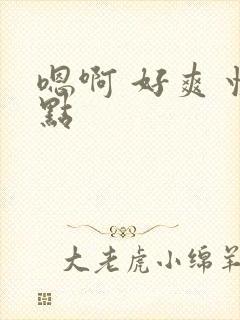 嗯啊 好爽
點
大老虎小绵羊